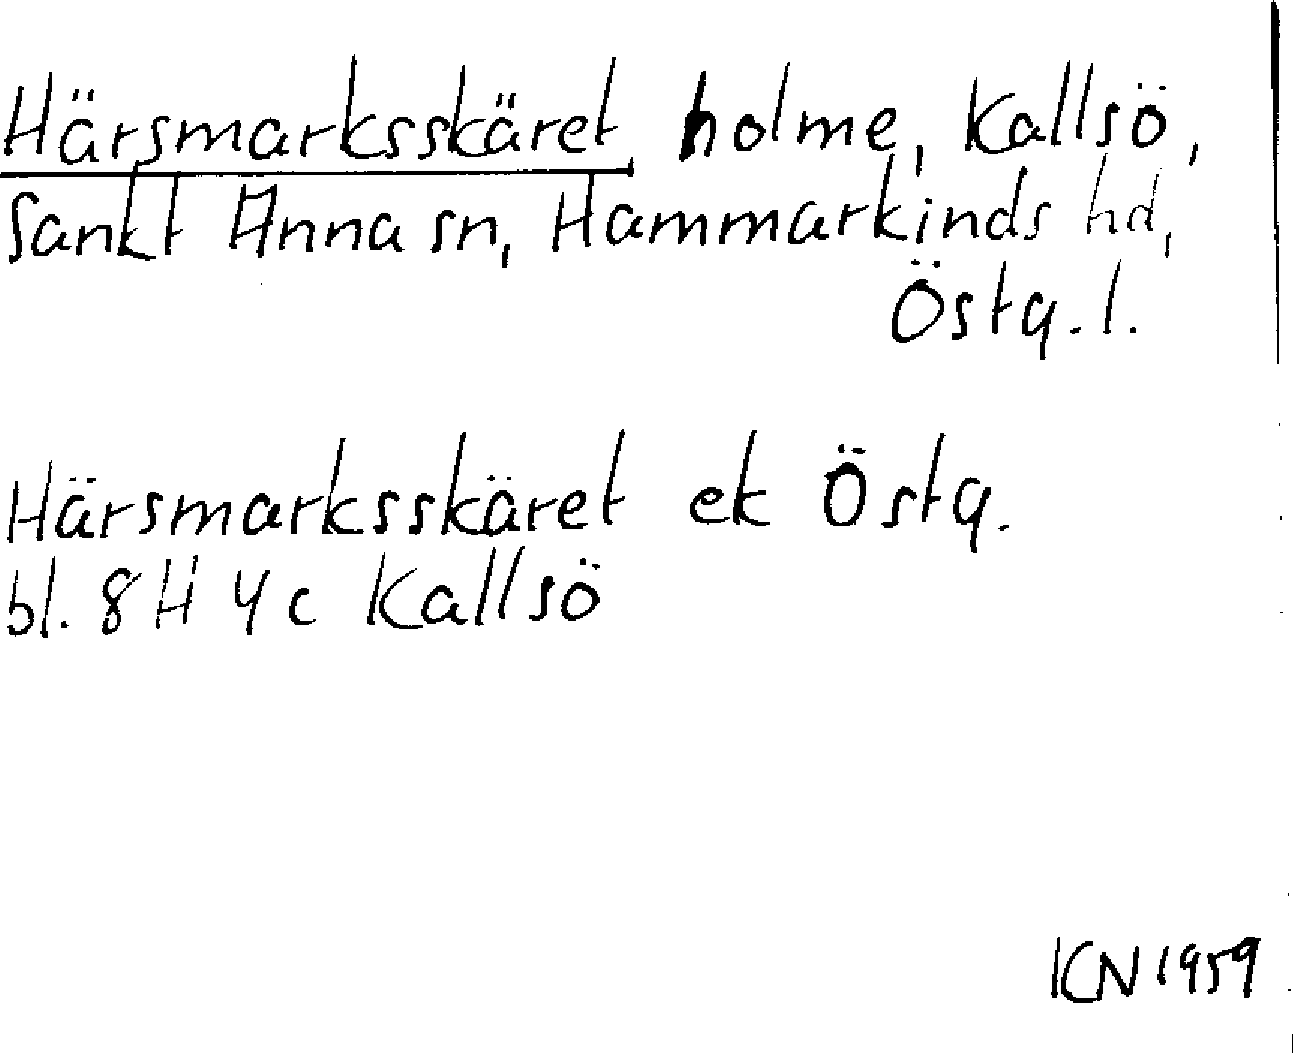 Härsmarksskäret, holme, Kallsö,
Sankt Anna sn, Hammarkinds hd,
Östg. l.
Härsmarksskäret ek Östg.
bl. 8H 4c Kallsö
KN 1959